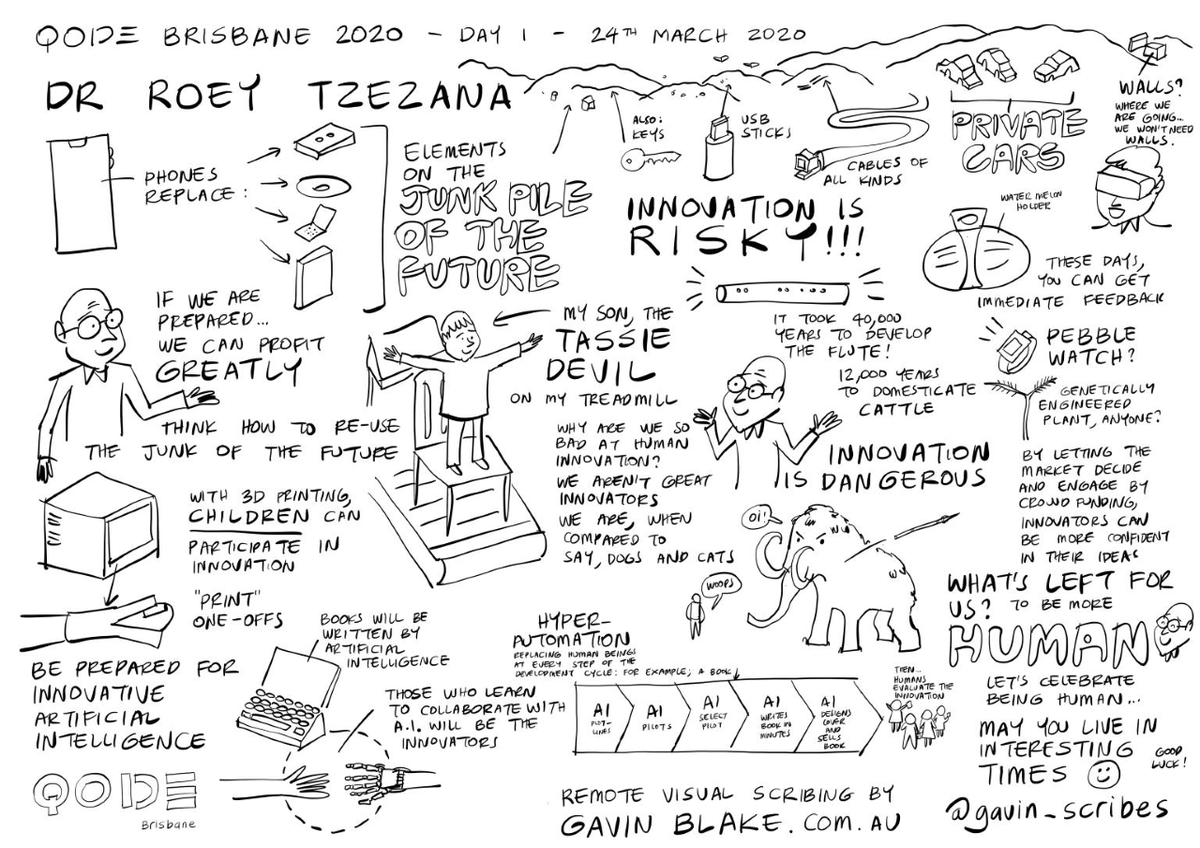 QODE BRISBANE 2020 - DAY 1 - 24TH MARCH 2020
DR ROEY TZEZANA
PHONES
REPLACE:
ELEMENTS
ON THE
JUNK PILE
OF THE
FUTURE
ALSO:
KEYS
USB
STICKS
CABLES OF
ALL KINDS
PRIVATE
CARS
WALLS?
WHERE WE
ARE GOING...
WE WON'T NEED
WALLS.
IF WE ARE
PREPARED...
WE CAN PROFIT
GREATLY
THINK HOW TO RE-USE
THE JUNK OF THE FUTURE
MY SON, THE
TASSIE
DEVIL
ON MY TREADMILL
INNOVATION IS
RISKY!!!
IT TOOK 40,000
YEARS TO DEVELOP
THE FLUTE!
12,000 YEARS
TO DOMESTICATE
CATTLE
WATER MELON
HOLDER
THESE DAYS,
YOU CAN GET
IMMEDIATE FEEDBACK
PEBBLE
WATCH?
GENETICALLY
ENGINEERED
PLANT, ANYONE?
WHY ARE WE SO
BAD AT HUMAN
INNOVATION?
WE AREN'T GREAT
INNOVATORS
WE ARE, WHEN
COMPARED TO
SAY, DOGS AND CATS
INNOVATION
IS DANGEROUS
OI!
WOOPS
BY LETTING THE
MARKET DECIDE
AND ENGAGE BY
CROWD FUNDING,
INNOVATORS CAN
BE MORE CONFIDENT
IN THEIR IDEAS
WITH 3D PRINTING,
CHILDREN CAN
PARTICIPATE IN
INNOVATION
"PRINT"
ONE-OFFS
BE PREPARED FOR
INNOVATIVE
ARTIFICIAL
INTELLIGENCE
BOOKS WILL BE
WRITTEN BY
ARTIFICIAL
INTELLIGENCE
THOSE WHO LEARN
TO COLLABORATE WITH
A.I. WILL BE THE
INNOVATORS
HYPER-
AUTOMATION
REPLACING HUMAN BEINGS
AT EVERY STEP OF THE
DEVELOPMENT CYCLE: FOR EXAMPLE; A BOOK
AI
PLOT-
LINES
AI
PILOTS
AI
SELECT
PILOT
AI
WRITES
BOOK IN
MINUTES
AI
DESIGNS
COVER
AND
SELLS
BOOK
THEN...
HUMANS
EVALUATE THE
INNOVATION
WHAT'S LEFT FOR
US? TO BE MORE
HUMAN
LET'S CELEBRATE
BEING HUMAN...
MAY YOU LIVE IN
INTERESTING
TIMES
GOOD
LUCK!
QODE
Brisbane
REMOTE VISUAL SCRIBING BY
GAVIN BLAKE.COM.AU
@gavin_scribes